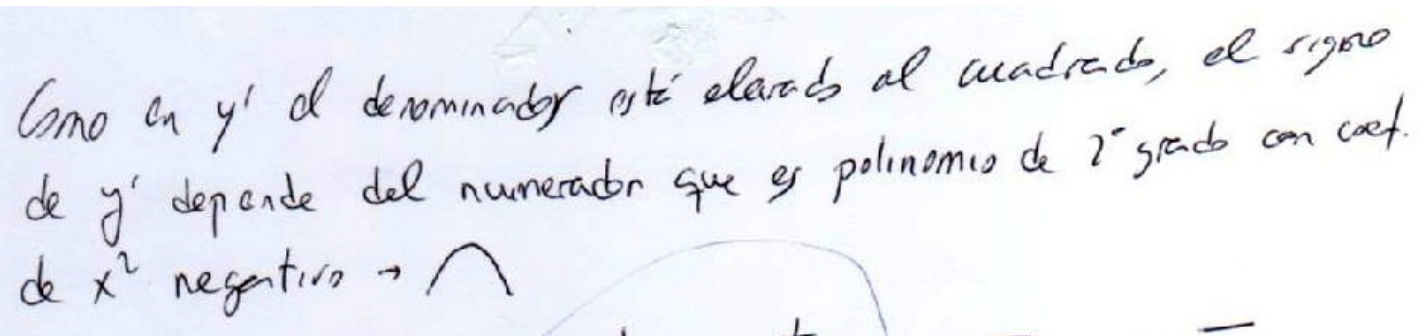 Como en y' el denominador está elevado al cuadrado, el signo
de y' depende del numerador que es polinomio de 2º grado con coef.
de x² negativo →